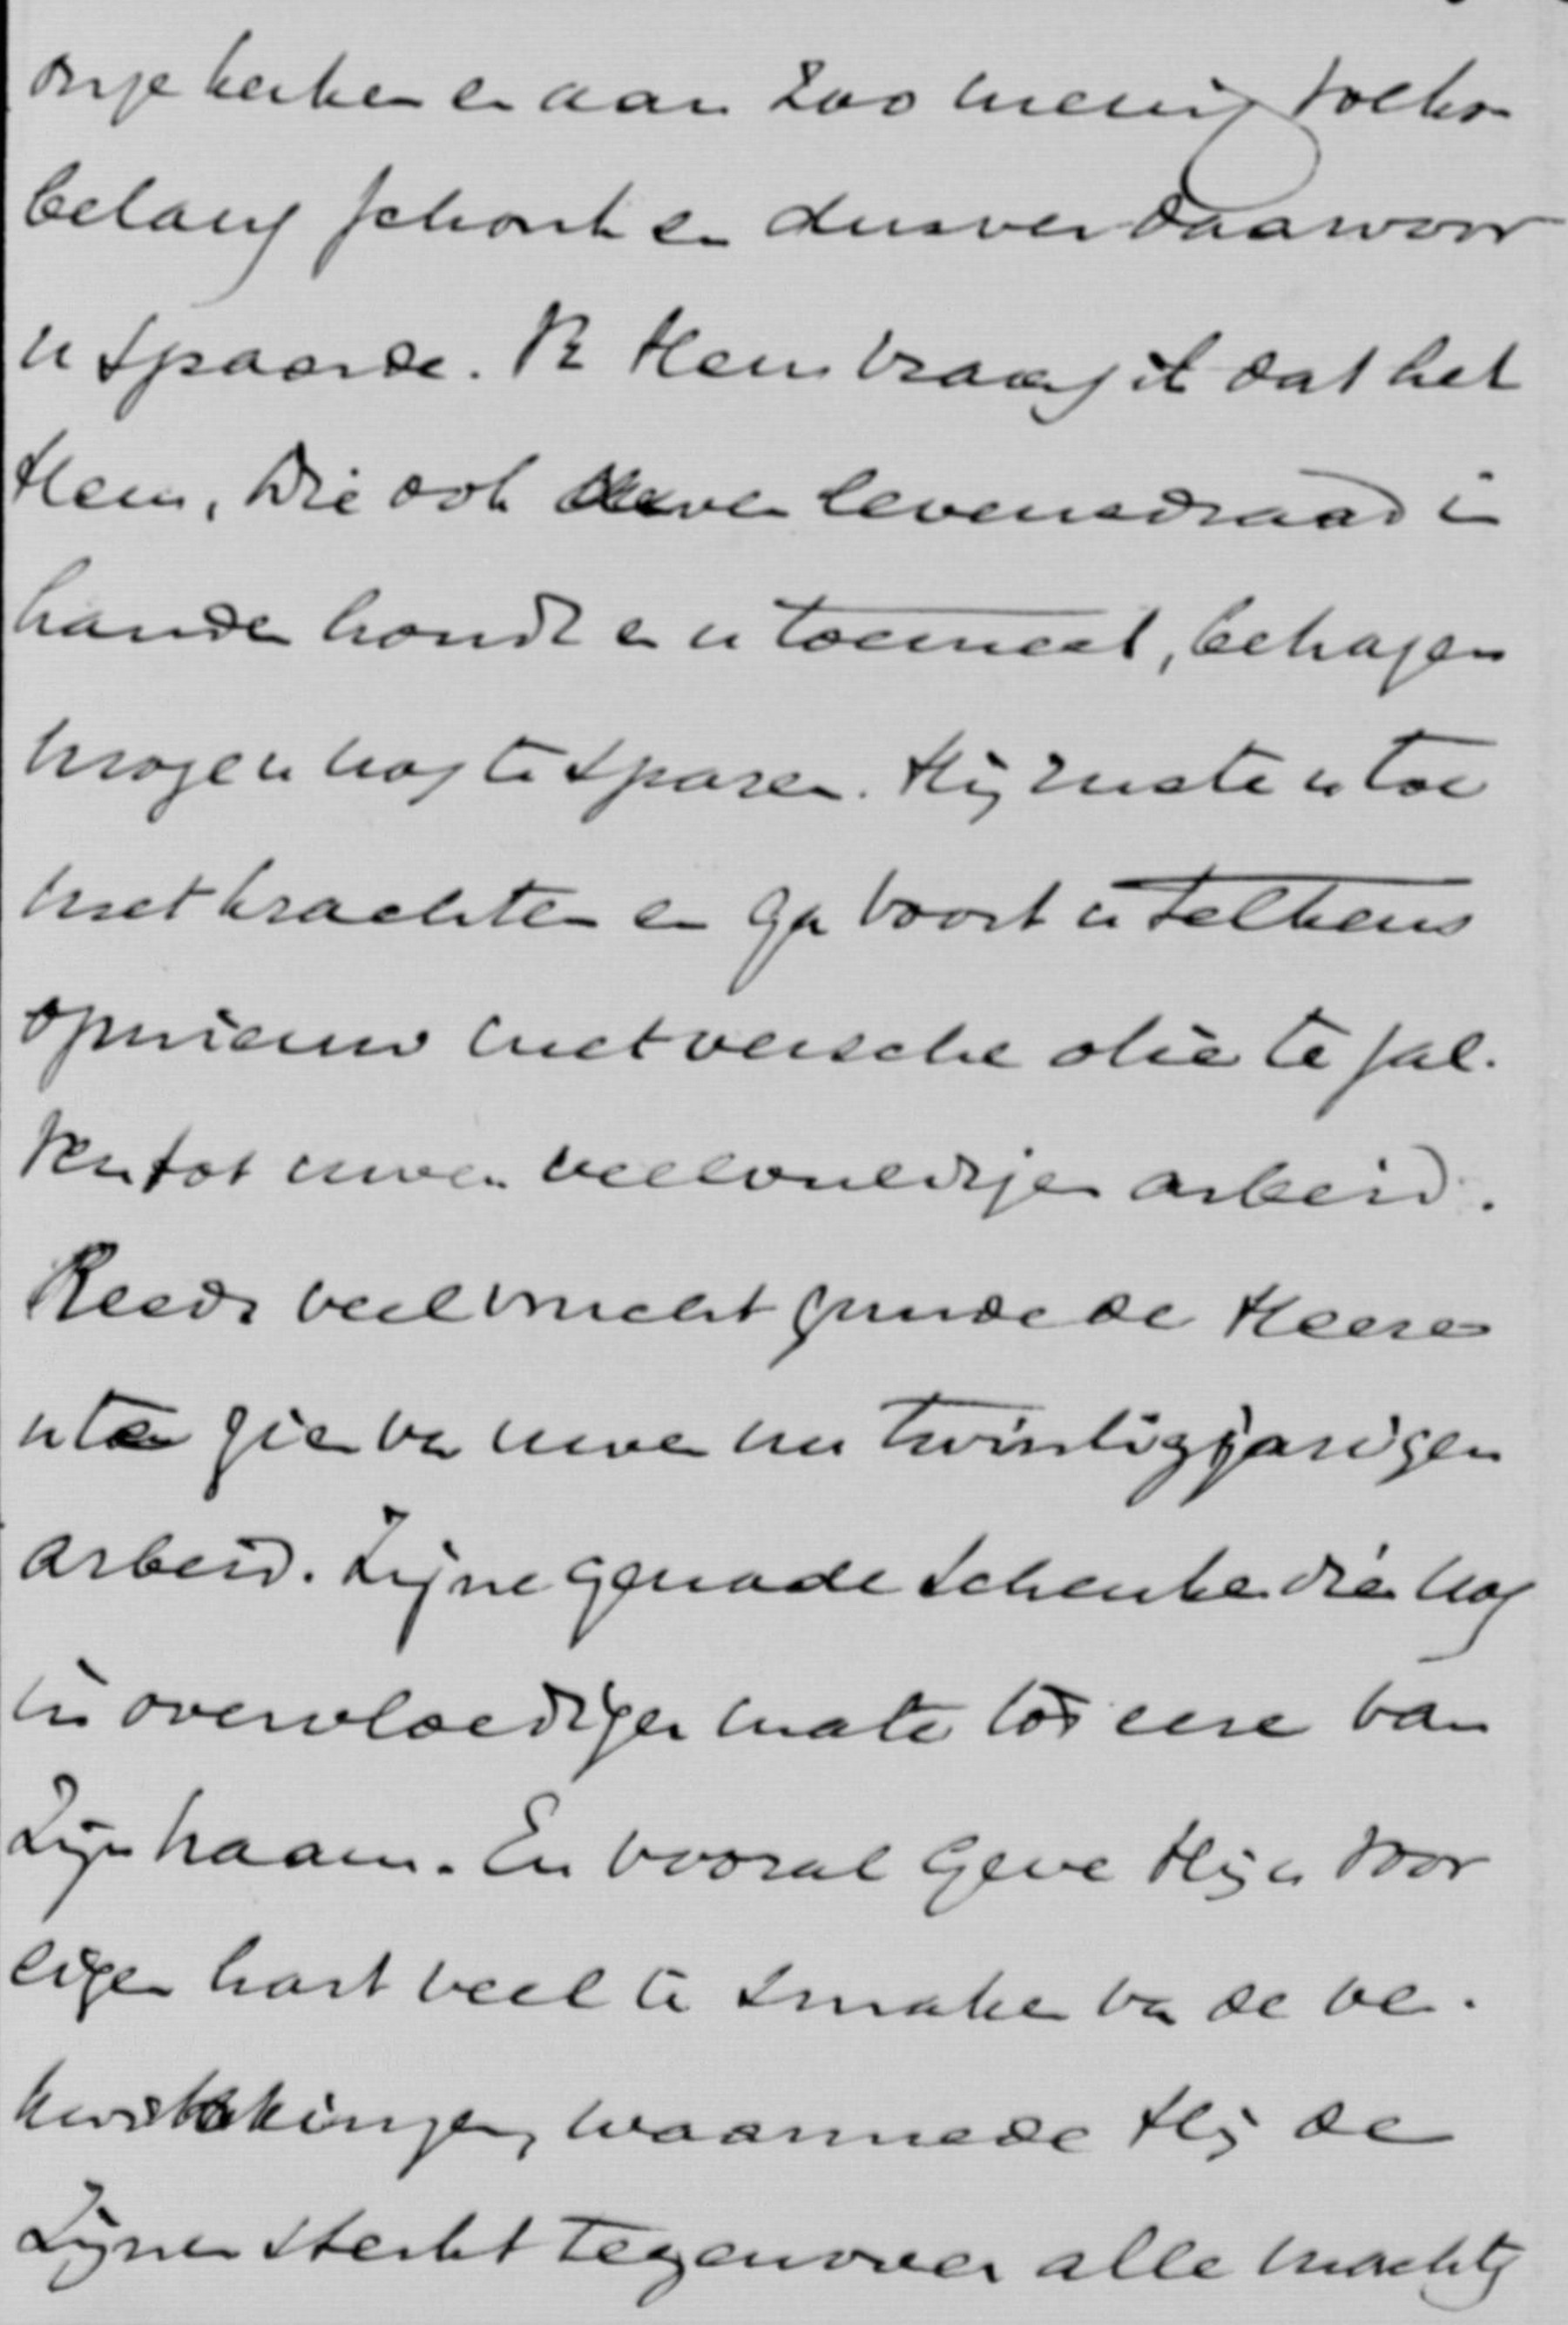 onze kerken en aan zoo menig volks
belang schonk en dusver daarvoor
u spaarde. Ik Hem vraag ik dat het
Hem, Die ook uwen levensdraad in
handen houdt en u toemeet, behagen
moge u nog te sparen. Hij ruste u toe
met krachten en ga voort u telkens
opnieuw met versche olie te zal-
ven tot uwen veelvuldigen arbeid.
Reeds veel vrucht gunde de Heere
u te zien van uwen nu twintigjarigen
arbeid. Zijne genade schenke die nog
in overvloediger mate tot eere van
Zijn naam. En vooral geve Hij u voor
eigen hart veel te smaken van de ver-
kwikkingen, waarmede Hij de
Zijnen sterkt tegenover alle macht